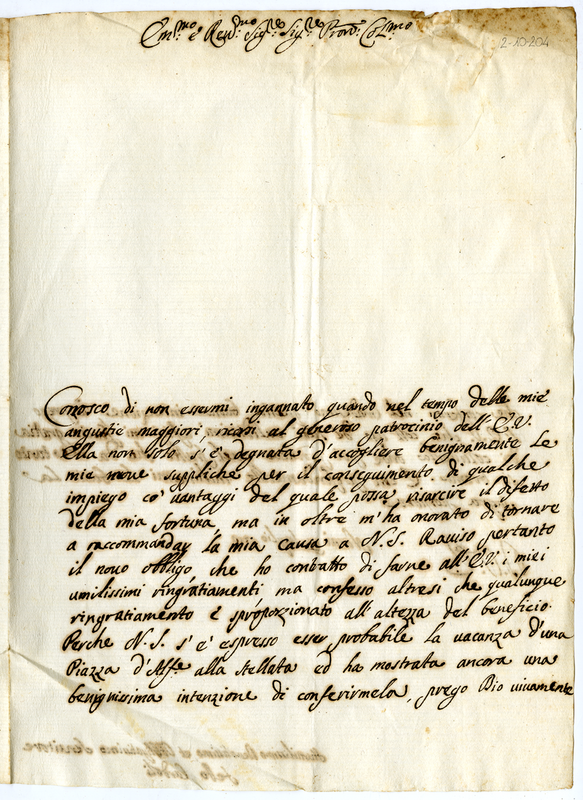 Em.mo e Rev.dmo Sig.re Sig.re Pron. Col.mo
2-10-204
Conosco di non essermi ingannato quando nel tempo delle mie
angustie maggiori, ricorsi al generoso patrocinio dell'E.V.
Ella non solo s'è degnata d'accogliere benignamente le
mie nove suppliche per il conseguimento di qualche
impiego co' vantaggi del quale possa risarcire il difetto
della mia fortuna, ma in oltre m'ha onorato di tornare
a raccommandar la mia causa a N.S. Raviso pertanto
il novo obligo che ho contratto di farne all'E.V. i miei
umilissimi ringratiamenti ma confesso altresi che qualunque
ringratiamento è sproporzionato all'altezza del beneficio.
Perche N.S. s'è espresso esser probabile la vacanza d'una
Piazza d'Alf.e alla stellata ed ha mostrata ancora una
benignissima intenzione di conferirmela, prego Dio vivamente